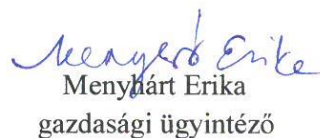 Menyhárt Erika
Menyhárt Erika
gazdasági ügyintéző